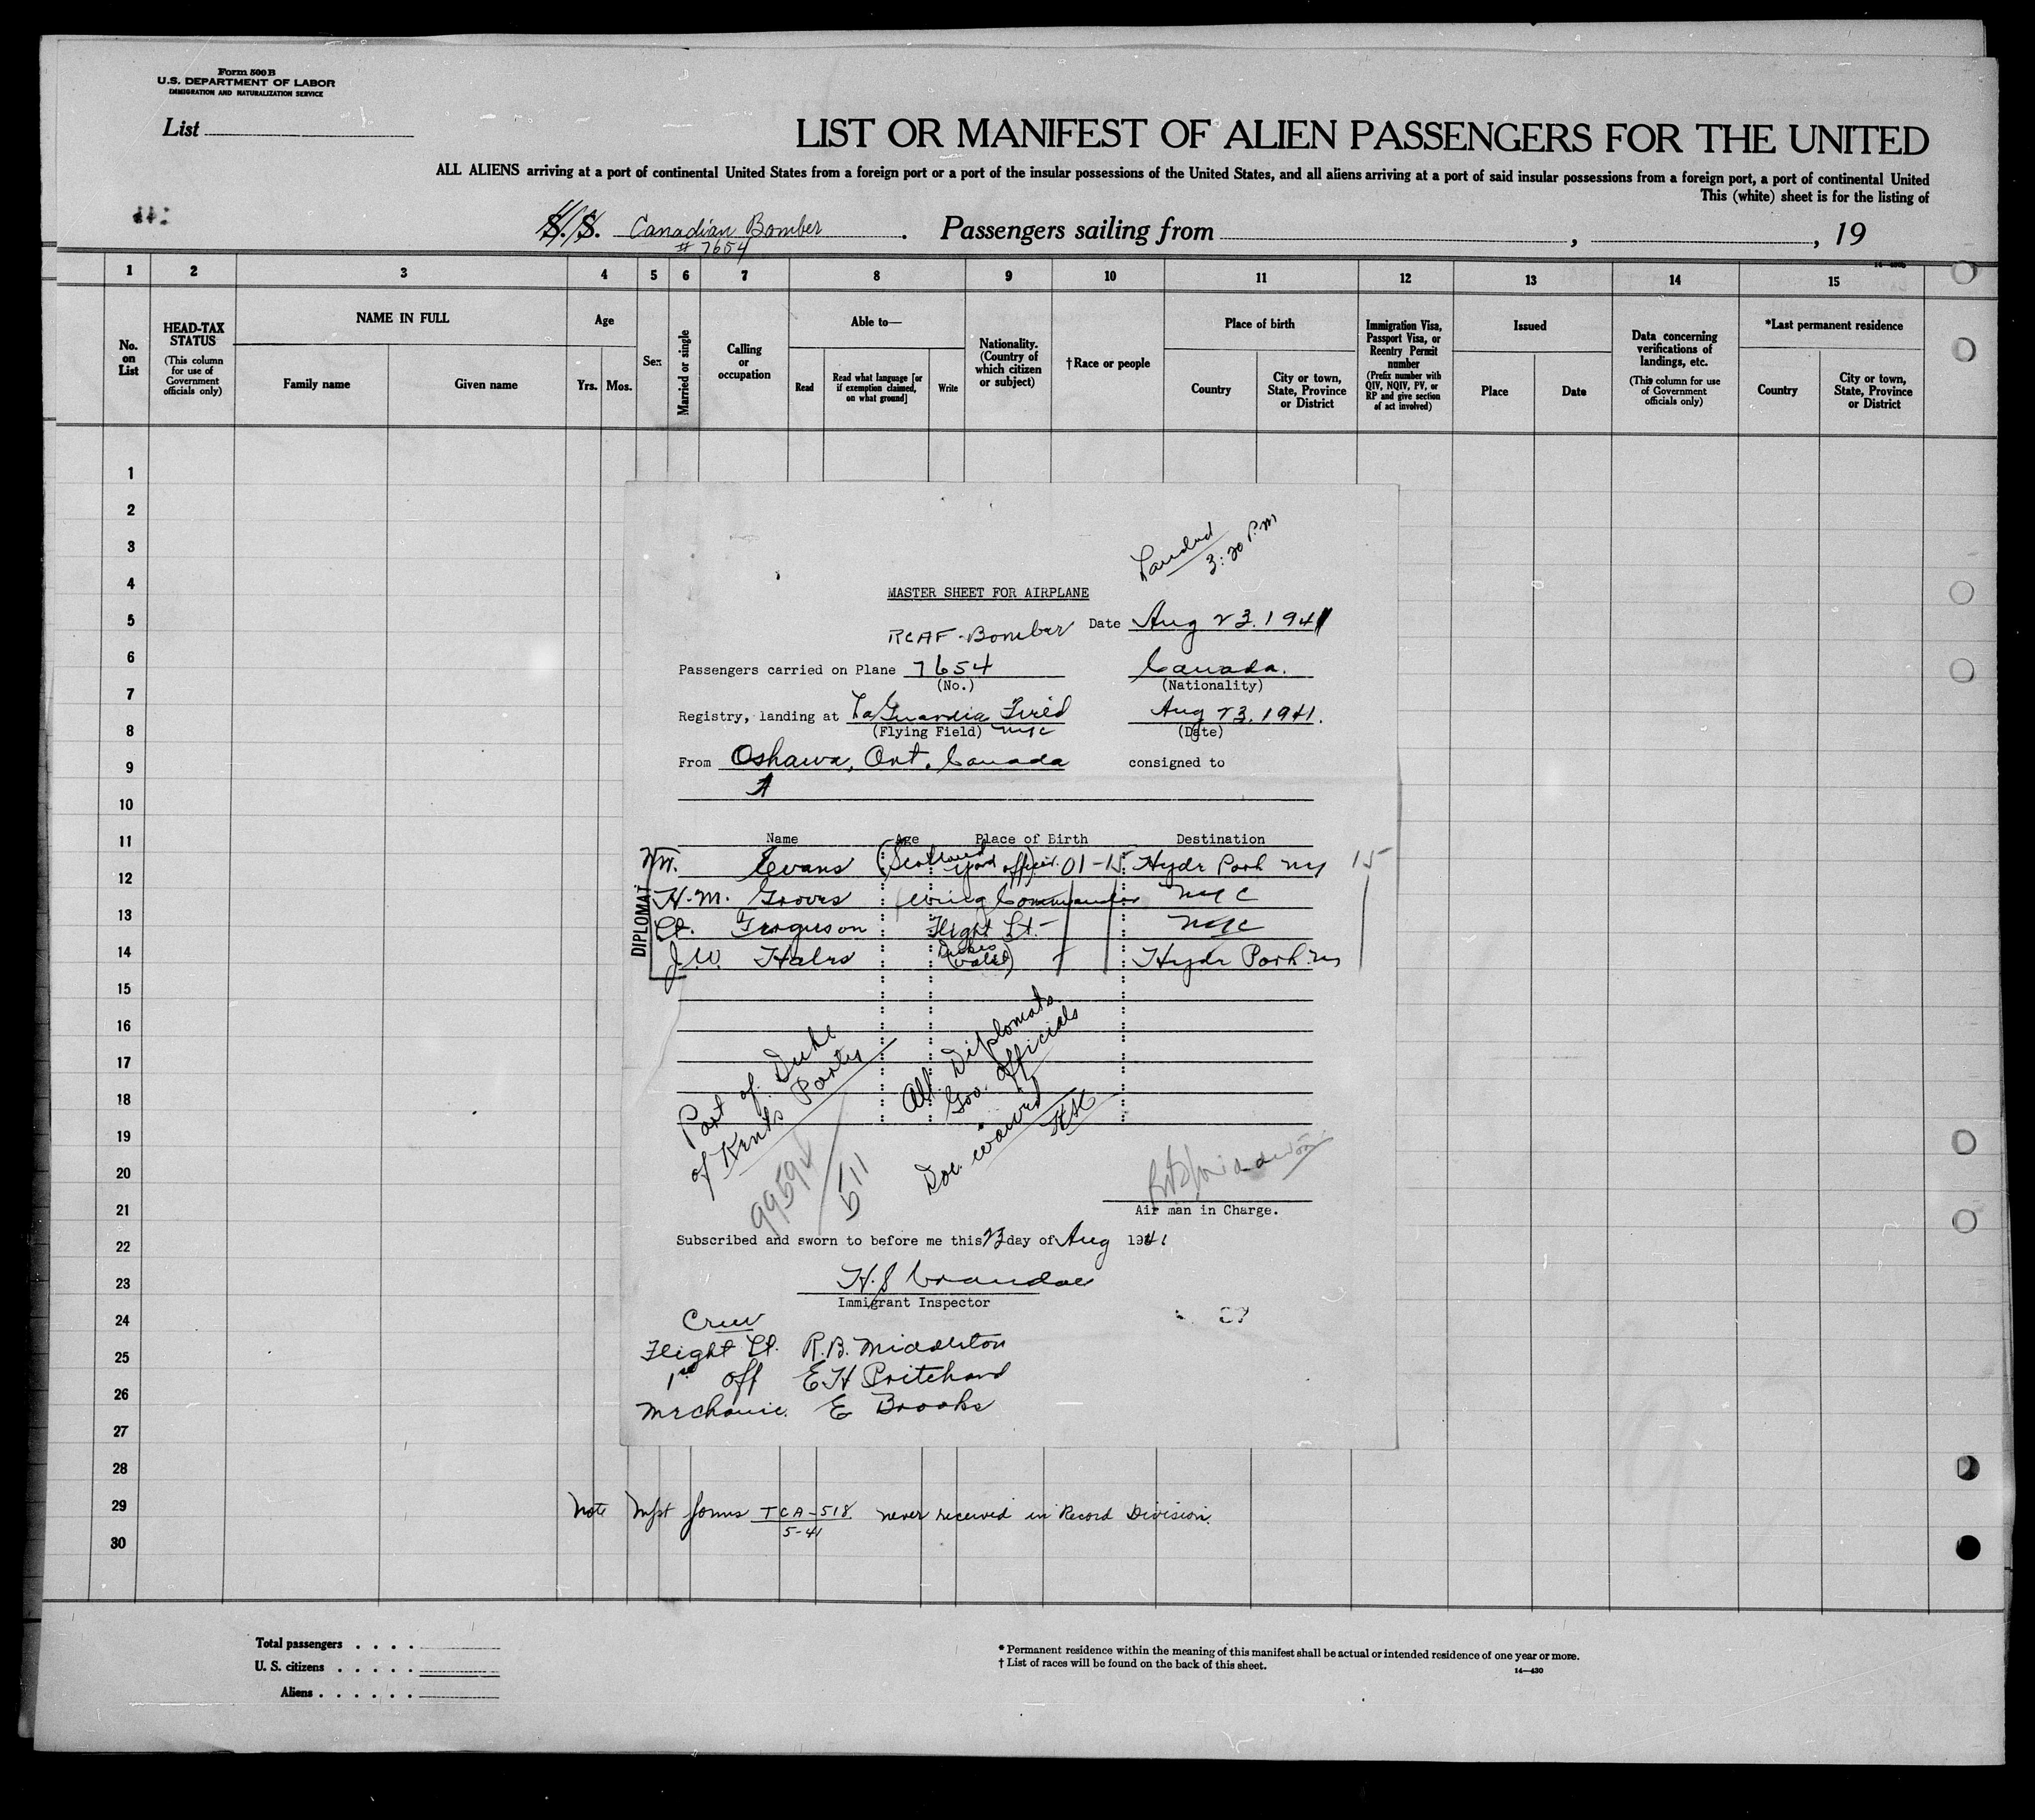 Form 500 B
U.S. DEPARTMENT OF LABOR
IMMIGRATION AND NATURALIZATION SERVICE
List
LIST OR MANIFEST OF ALIEN PASSENGERS FOR THE UNITED
ALL ALIENS arriving at a port of continental United States from a foreign port or a port of the insular possessions of the United States, and all aliens arriving at a port of said insular possessions from a foreign port, a port of continental United
This (white) sheet is for the listing of
S. S. Canadian Bomber . Passengers sailing from , , 19
# 7654
1 2 3 4 5 6 7 8 9 10 11 12 13 14 15
No. on List
HEAD-TAX STATUS
(This column for use of Government officials only)
NAME IN FULL
Family name
Given name
Age
Yrs.
Mos.
Sex
Married or single
Calling or occupation
Able to—
Read
Read what language [or if exemption claimed, on what ground]
Write
Nationality. (Country of which citizen or subject)
†Race or people
Place of birth
Country
City or town, State, Province or District
Immigration Visa, Passport Visa, or Reentry Permit number
(Prefix number with QIV, NQIV, PV, or RP and give section of act involved)
Issued
Place
Date
Data concerning verifications of landings, etc.
(This column for use of Government officials only)
*Last permanent residence
Country
City or town, State, Province or District
1
2
3
4
5
6
7
8
9
10
11
12
13
14
15
16
17
18
19
20
21
22
23
24
25
26
27
28
29
30
Landed
3:20 P.M
MASTER SHEET FOR AIRPLANE
Date Aug 23. 1941
RCAF-Bomber
Passengers carried on Plane 7654 Canada.
(No.) (Nationality)
Registry, landing at LaGuardia Field Aug 23. 1941.
(Flying Field) NYC (Date)
From Oshawa, Ont. Canada consigned to
Name Age Place of Birth Destination
Evans (Scotland Yard officer) 01-15 Hyde Park NY 15
H.M. Groves (Wing Commander NYC
Lt. Ferguson Flight Lt. NYC
J.W. Hales (Dukes valet) Hyde Park NY
DIPLOMAT
Part of Duke
of Kents Party
All Diplomats
Gov. Officials
Doc. waived
99594
511
Air man in Charge.
Subscribed and sworn to before me this 23 day of Aug 1941
Immigrant Inspector
Crew
Flight Lt. R.B. Middleton
1st off E H Pritchard
Mechanic. E Brooks
Note Mfst forms TCA-518 never received in Record Division.
5-41
Total passengers . . . .
U. S. citizens . . . . .
Aliens . . . . . .
* Permanent residence within the meaning of this manifest shall be actual or intended residence of one year or more.
† List of races will be found on the back of this sheet.
14—430